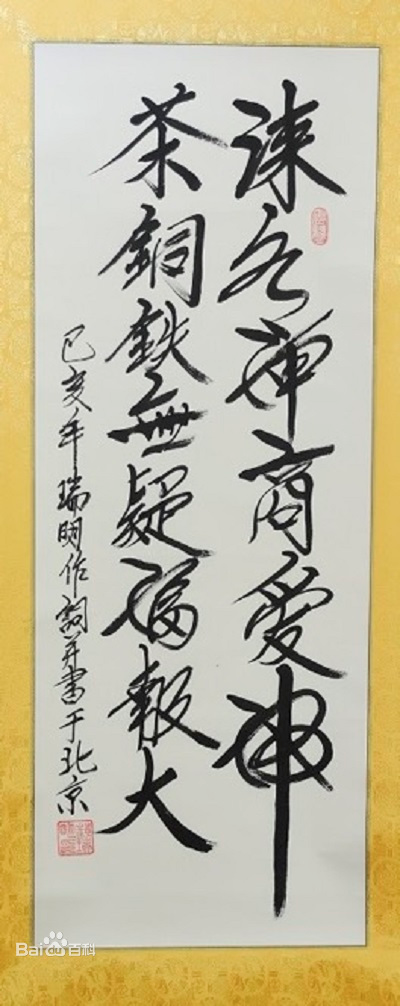 禅商愛神
茶銅鉄無疑福報大
己亥年瑞明作詞并書于北京
Baidu百科